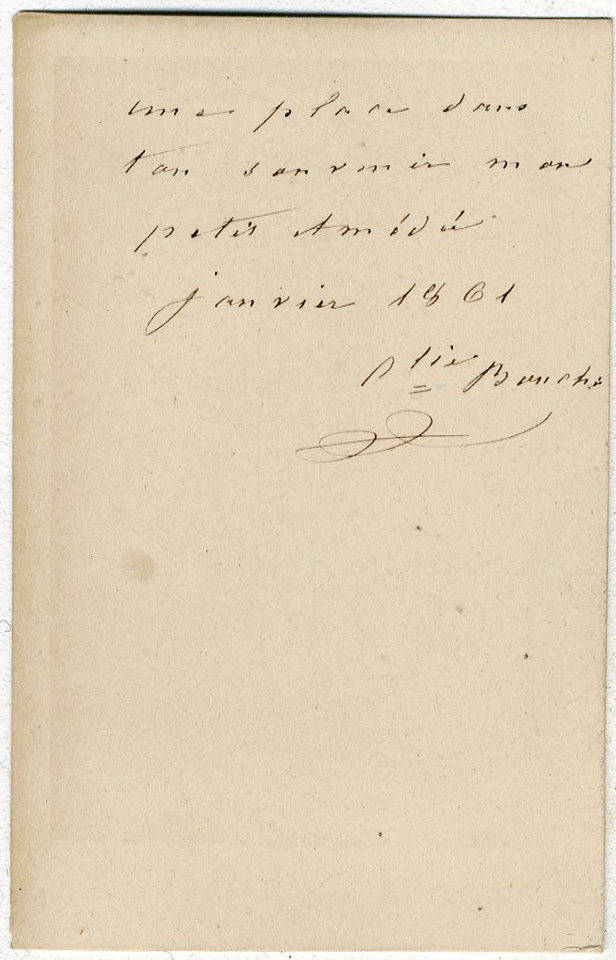 une place dans
ton souvenir mon
petit Amédé
janvier 1861